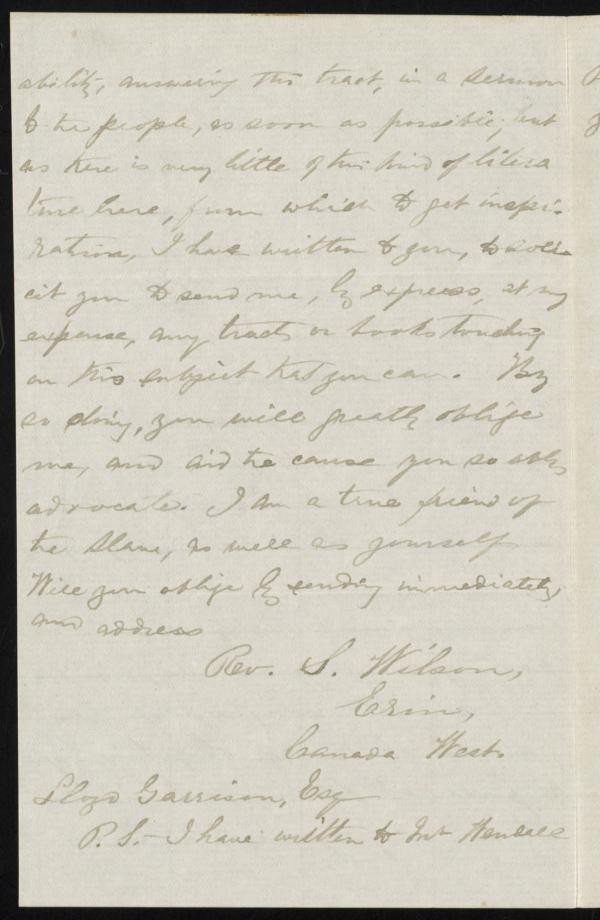 ability, answering this tract, in a sermon
to the people, as soon as possible; but
as there is very little of this kind of litera
ture here, from which to get inspi-
ration, I have written to you, to soli
cit you to send me, by express, at my
expense, any tracts or books touching
on this subject that you can. By
so doing, you will greatly oblige
me, and aid the cause you so ably
advocate. I am a true friend of
the slave, as well as yourself
Will you oblige by sending immediately,
and address
Rev. S. Wilson,
Erin,
Canada West.
Lloyd Garrison, Esq
P.S.- I have written to Mr